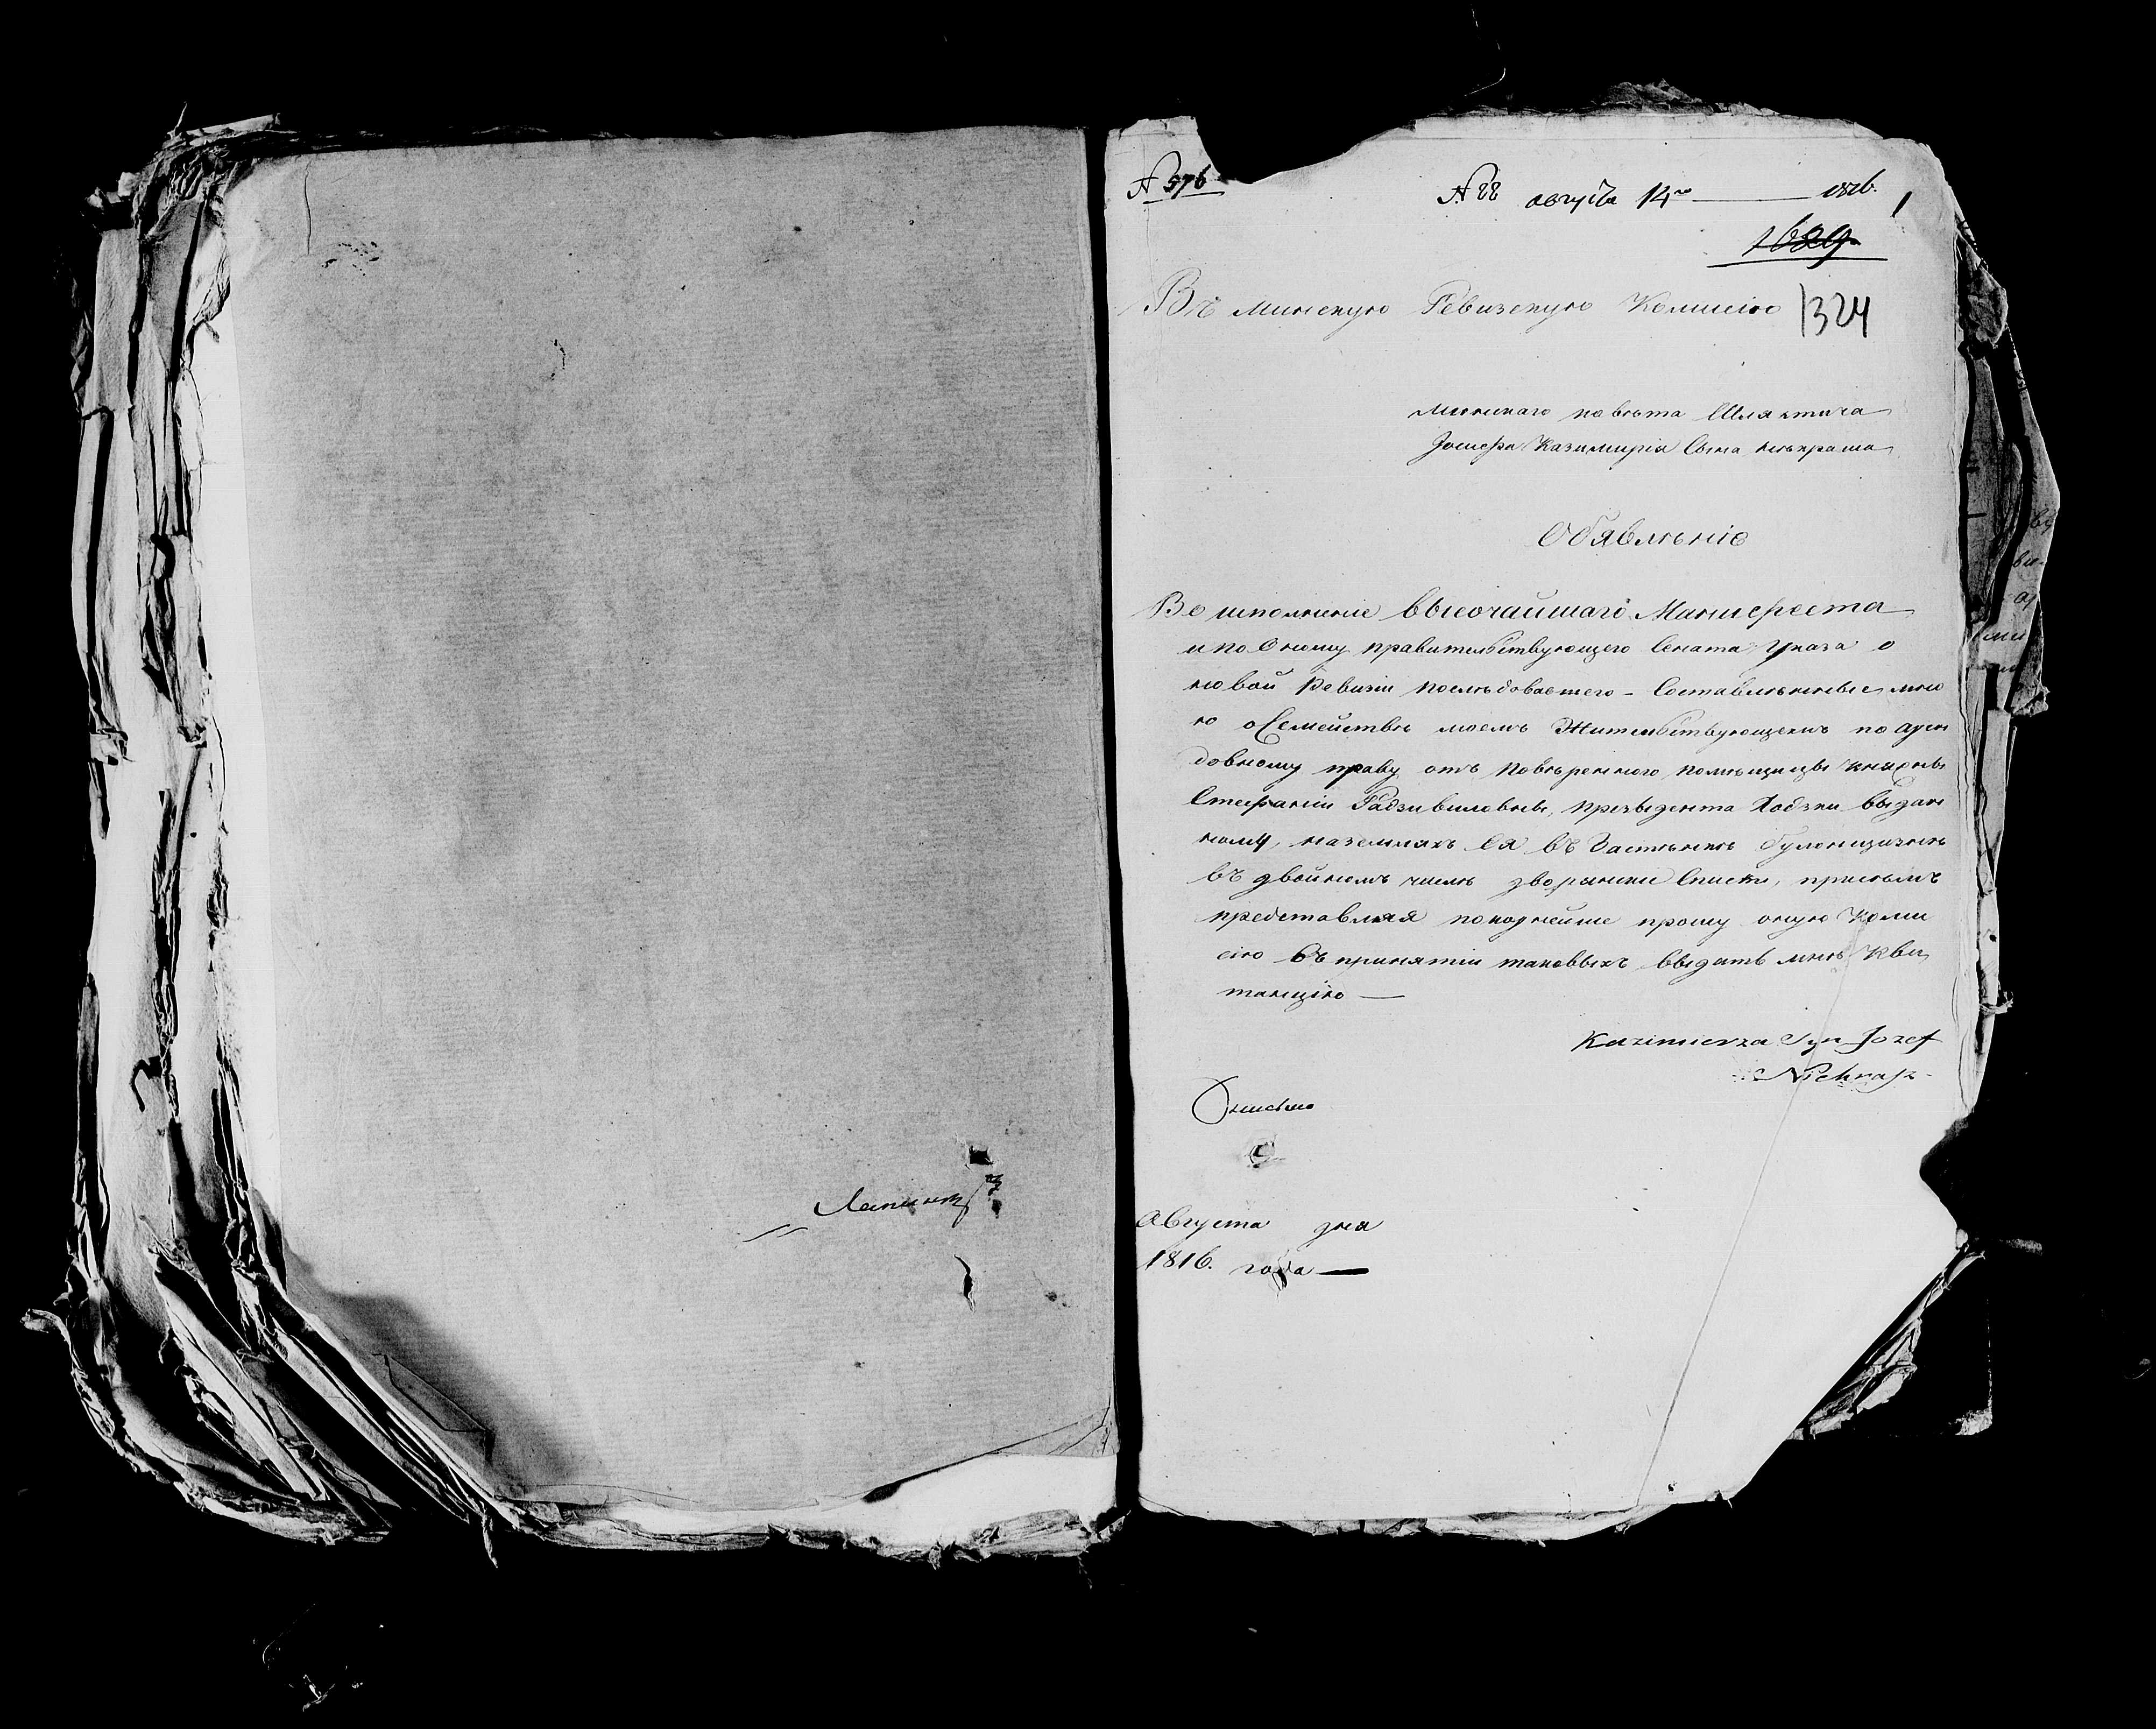 № 576
№ 88 августа 14го 1816.
1
1689
Въ минскую Ревизскую Комисію
1324
минскаго повѣта Шляхтича
Іосифа Казимирія Сына Нѣкраша
Обявлѣніе
Во исполнение высочайшаго Манифеста
и по оному правительствующего Сената Указа о
новой Ревизіи послѣдовавшего Составлѣнные мно
ю о Семействѣ моемъ Жительствующемъ по арен
довному праву отъ повѣренного помѣщицы княжны
Стефаніи Радзивиловны, презыдента Ходзки выдан
ному, на земляхъ Ея въ Застѣнкѣ
въ двойномъ числѣ дворянские Списки, присемъ
представляя покорнейше прошу оную Коми
сію въ принятіи таковыхъ выдать мнѣ Кви
танцію —
Kazimierza Syn Jozef
Niekrasz
Августа дня
1816. года —